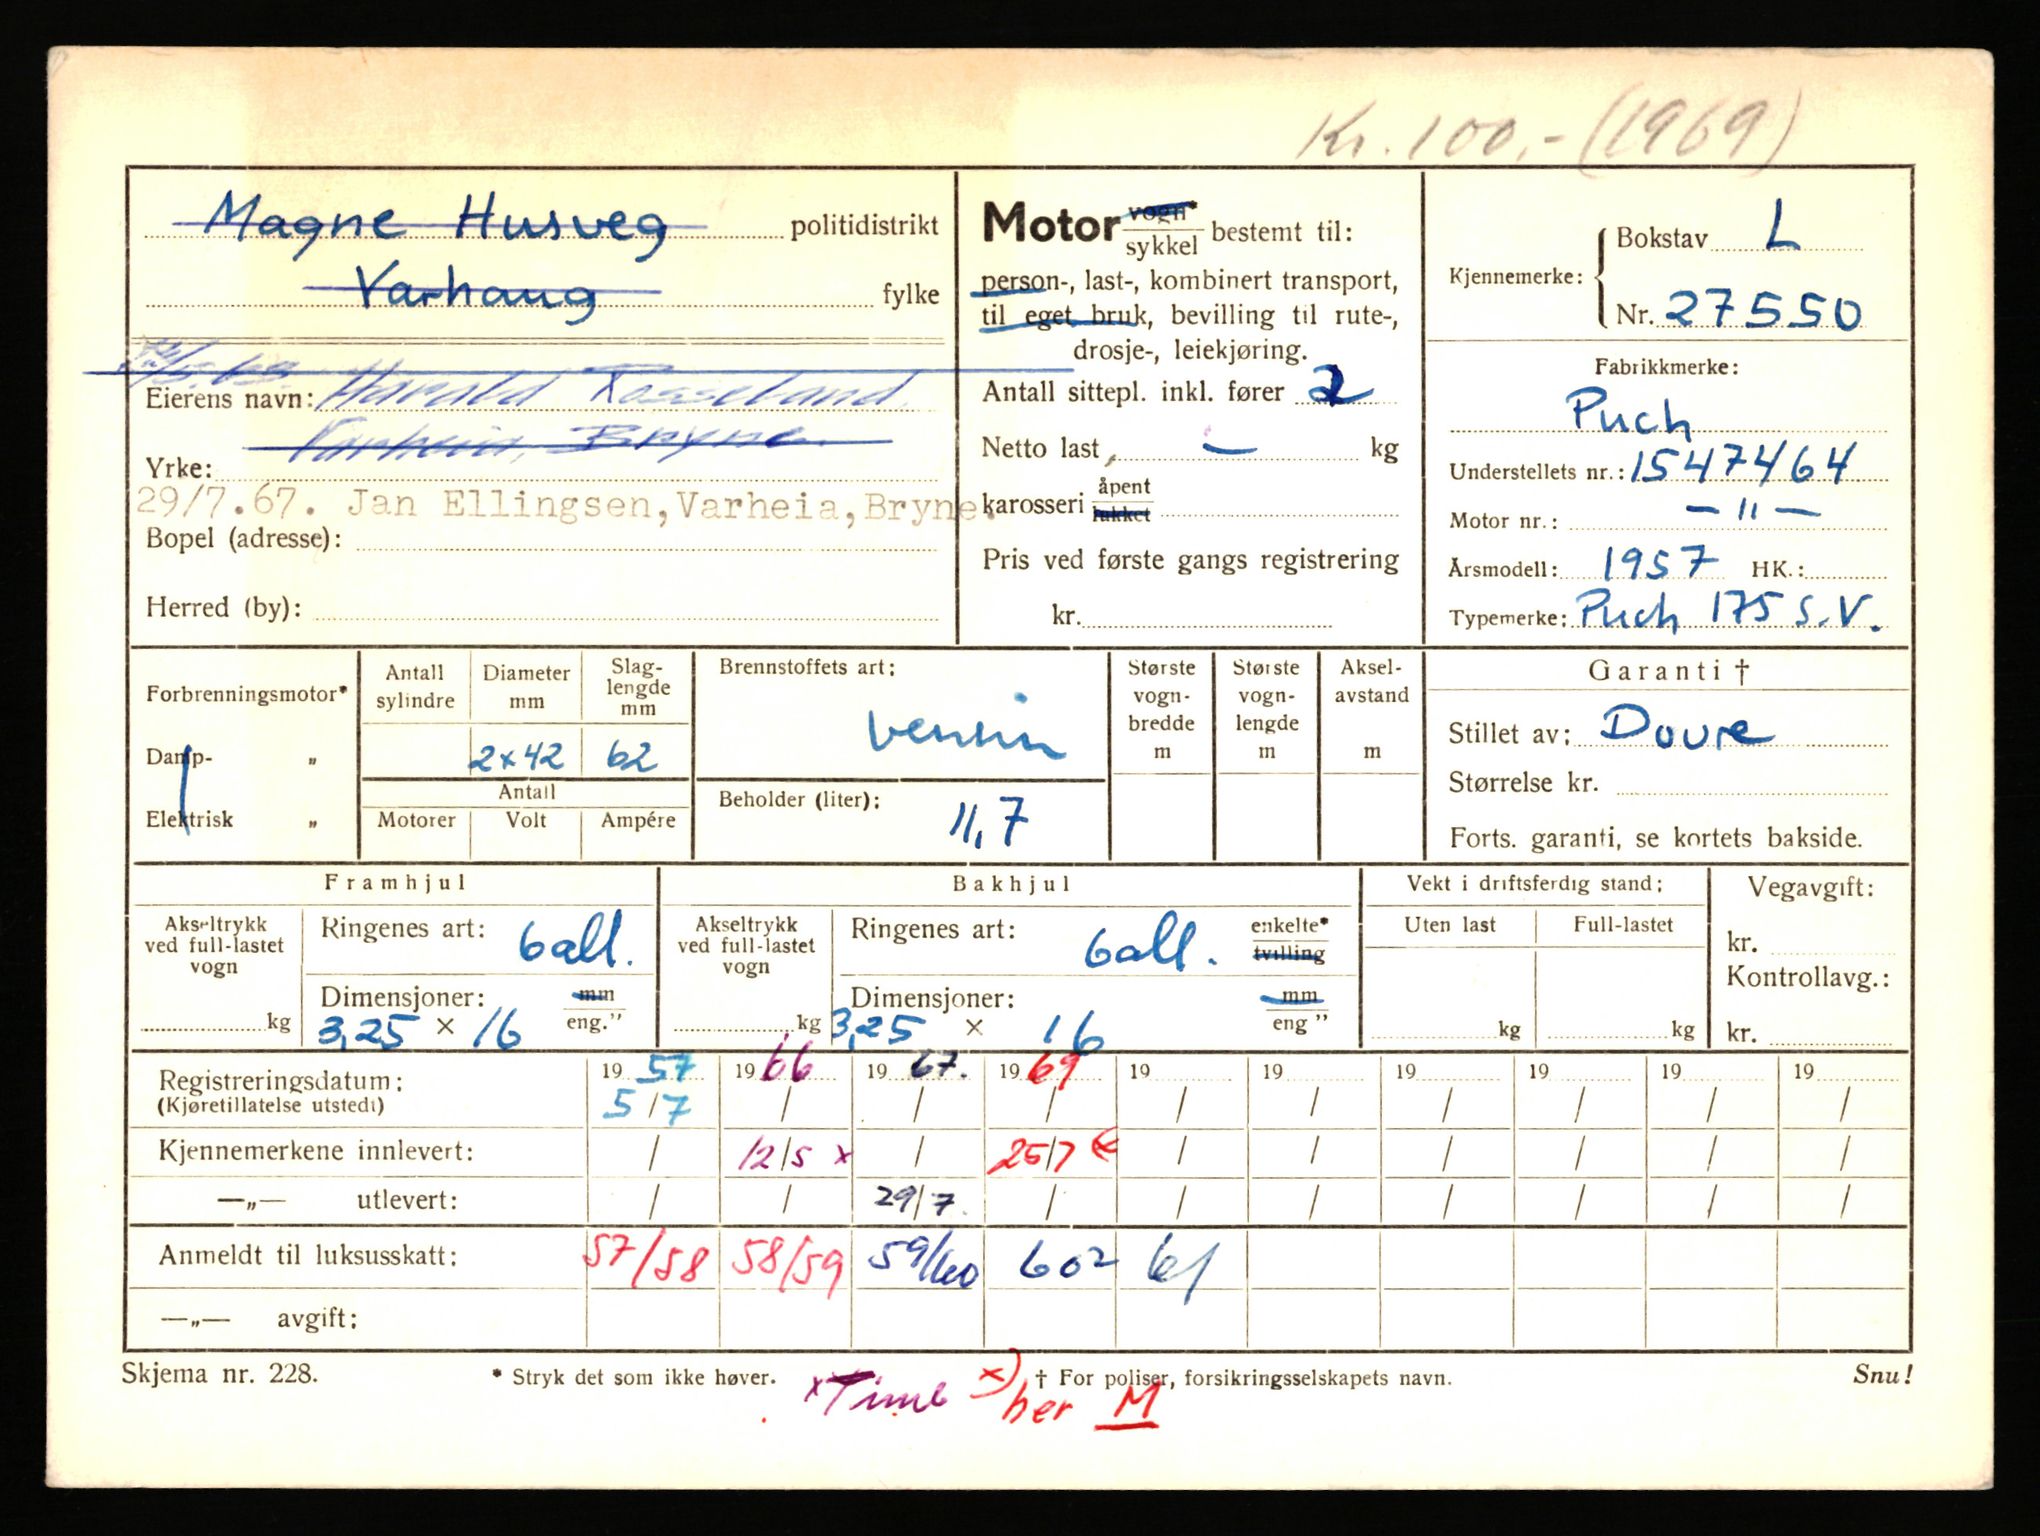 Kr. 100,- (1969)
Magne Husveg politidistrikt
Varhaug fylke
Eierens navn: Harald Tosseland
Varheia, Bryne
Yrke:
29/7.67. Jan Ellingsen, Varheia, Bryne.
Bopel (adresse):
Herred (by):
Motor vogn* sykkel bestemt til:
person-, last-, kombinert transport,
til eget bruk, bevilling til rute-,
drosje-, leiekjøring.
Antall sittepl. inkl. fører 2
Netto last, — kg
karosseri åpent lukket
Pris ved første gangs registrering
kr.
Kjennemerke: Bokstav L
Nr. 27550
Fabrikkmerke:
Puch
Understellets nr.: 1547464
Motor nr.: — 11 —
Årsmodell: 1957 HK.:
Typemerke: Puch 175 S.V.
Forbrenningsmotor*
Damp- „
Elektrisk „
Antall sylindre
Diameter mm
Slag-lengde mm
2x42 62
Antall
Motorer Volt Ampére
Brennstoffets art:
bensin
Beholder (liter):
11,7
Største vogn-bredde m
Største vogn-lengde m
Aksel-avstand m
Garanti †
Stillet av: Dovre
Størrelse kr.
Forts. garanti, se kortets bakside.
Framhjul
Akseltrykk ved full-lastet vogn
kg
Ringenes art: ball.
Dimensjoner: mm
3,25 × 16 eng."
Bakhjul
Akseltrykk ved full-lastet vogn
kg
Ringenes art: ball. enkelte* tvilling
Dimensjoner: mm
3,25 × 16 eng "
Vekt i driftsferdig stand:
Uten last Full-lastet
kg kg
Vegavgift:
kr.
Kontrollavg.:
kr.
Registreringsdatum: 19 57 19 66 19 67. 19 69 19 19 19 19 19 19
(Kjøretillatelse utstedt) 5/7 / / / / / / / / /
Kjennemerkene innlevert: / 12/5 x / 25/7 / / / / / /
—„— utlevert: / / 29/7. / / / / / / /
Anmeldt til luksusskatt: 57/58 58/59 59/60 602 61
—„— avgift:
Skjema nr. 228. * Stryk det som ikke høver. † For poliser, forsikringsselskapets navn. Snu!
x Time x) her M